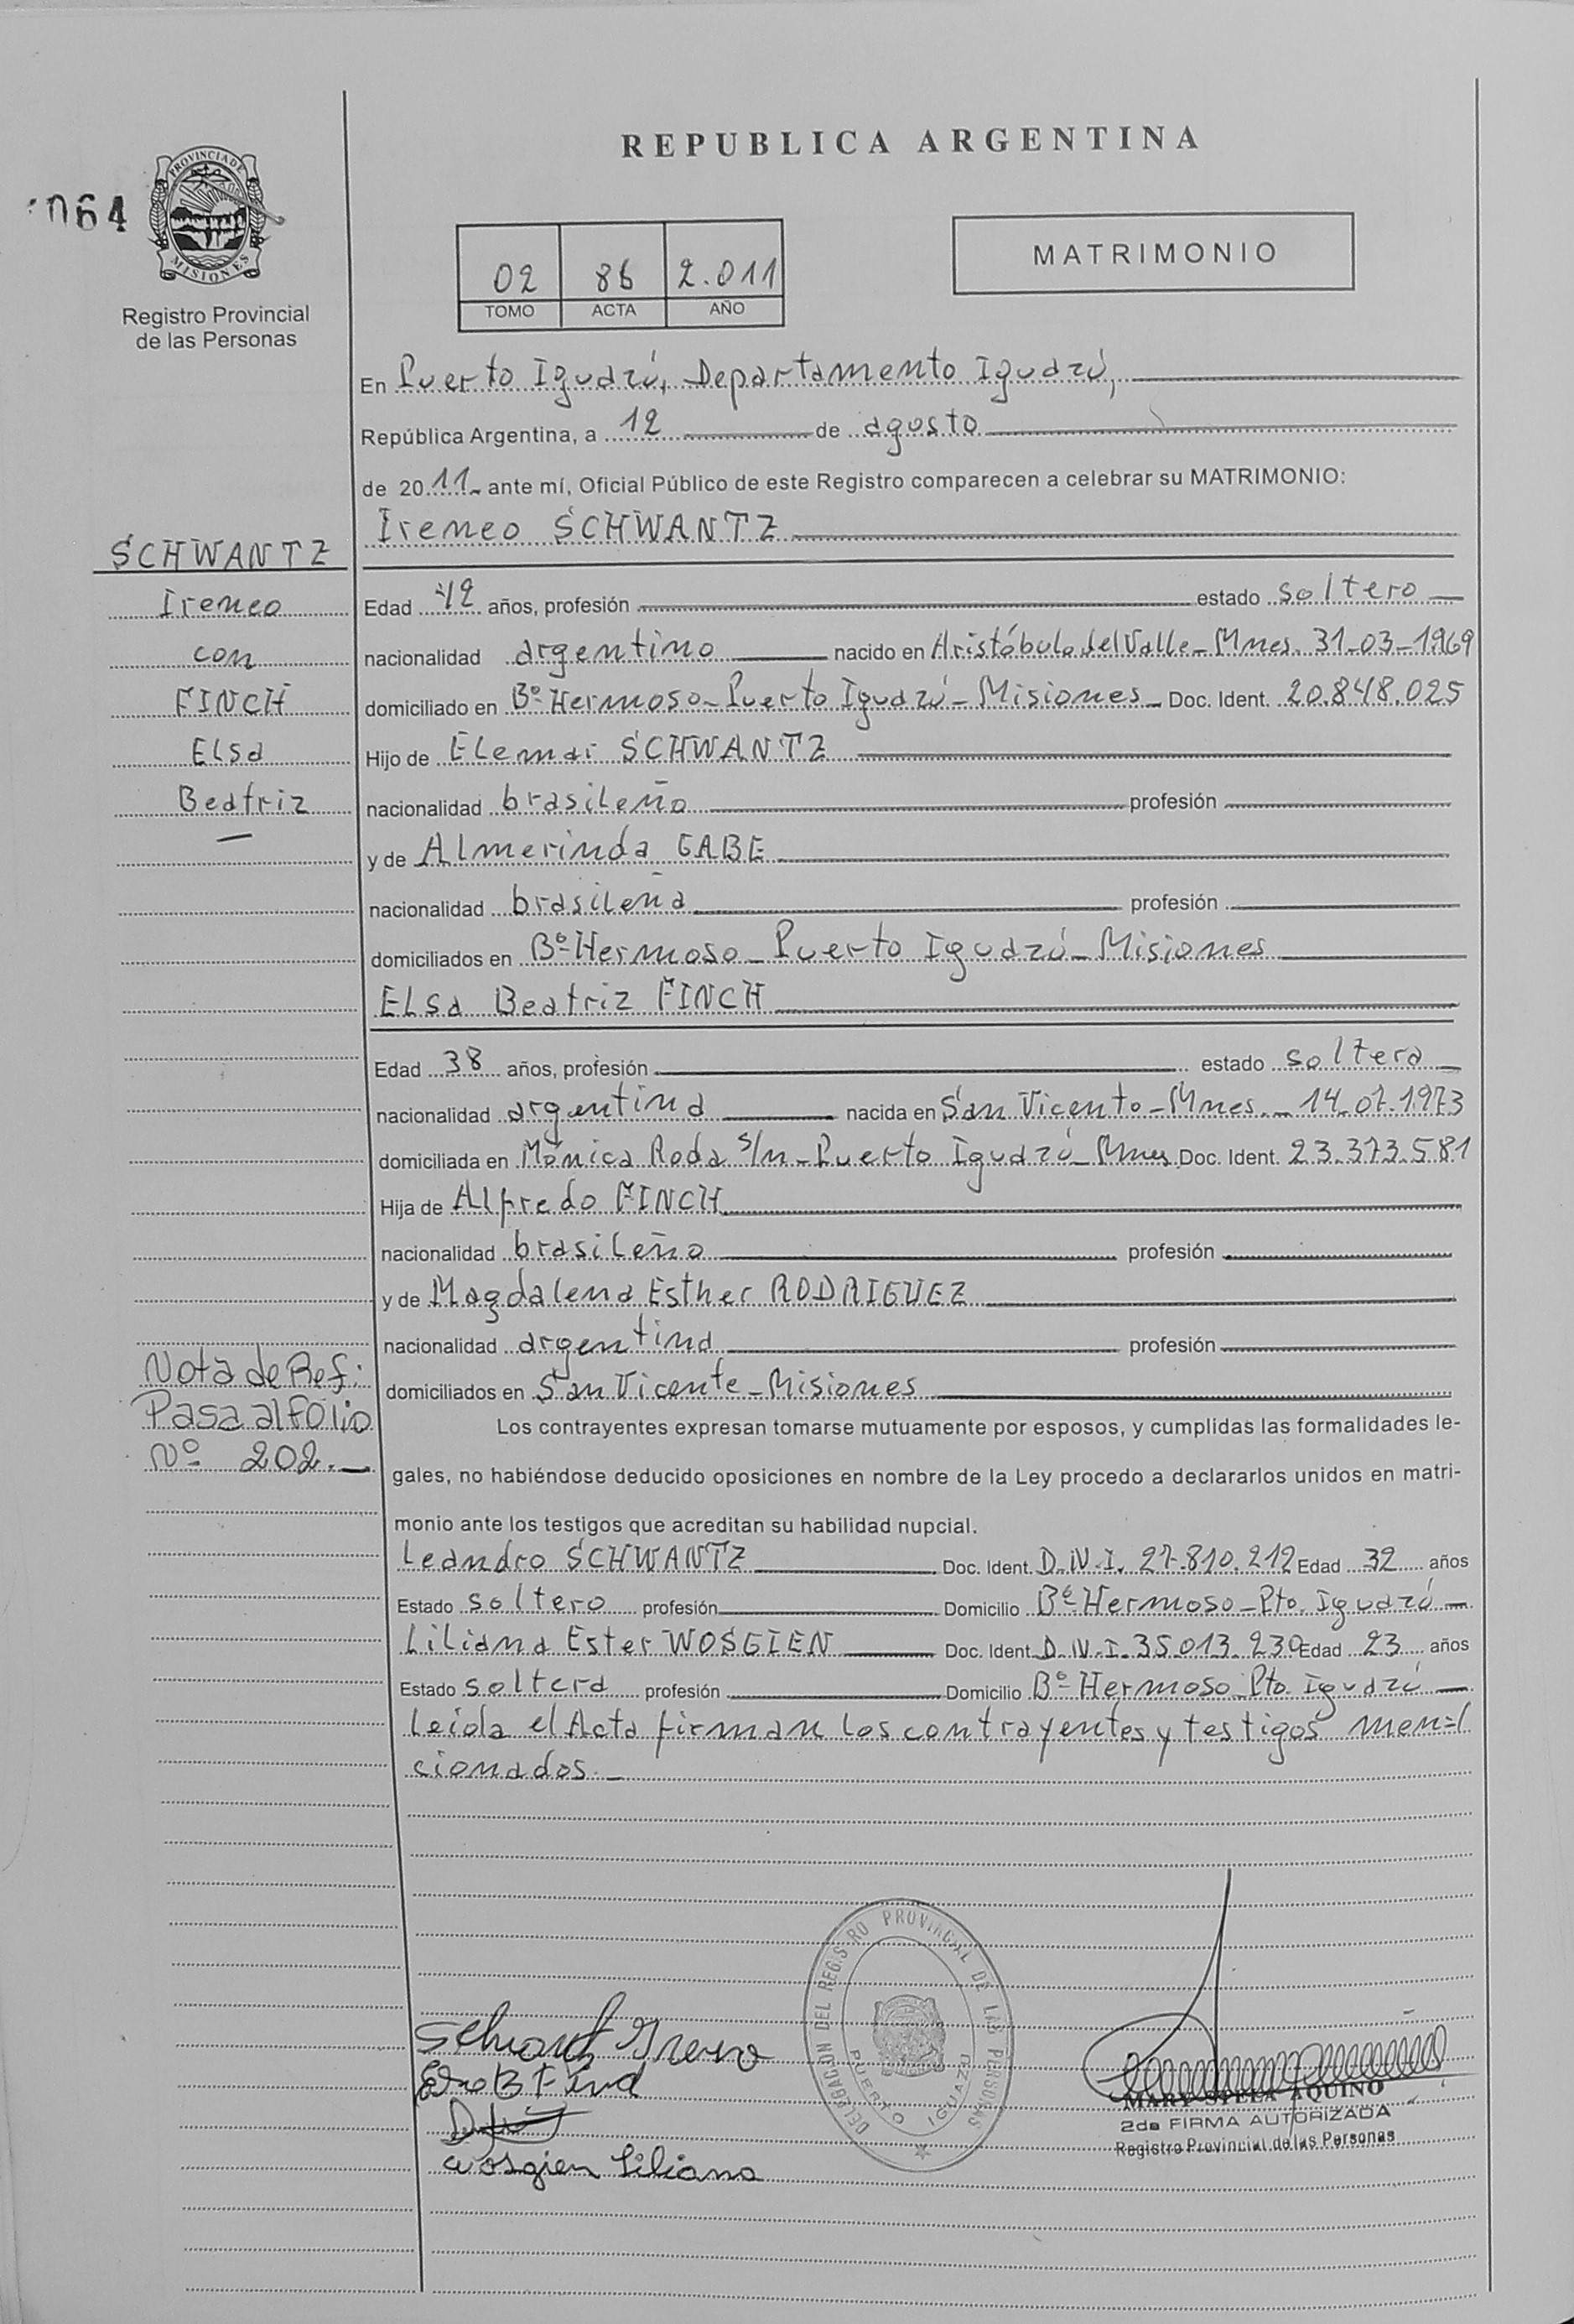 REPUBLICA ARGENTINA
064
PROVINCIA DE
MISIONES
Registro Provincial
de las Personas
02 86 2.011
TOMO ACTA AÑO
MATRIMONIO
En Puerto Iguazú, Departamento Iguazú,
República Argentina, a 12 de agosto
de 2011 ante mí, Oficial Público de este Registro comparecen a celebrar su MATRIMONIO:
Ireneo SCHWANTZ
SCHWANTZ
Ireneo
con
FINCH
Elsa
Beatriz
Edad 42 años, profesión estado soltero
nacionalidad argentino nacido en Aristóbulo del Valle - Mnes. 31-03-1969
domiciliado en Bº Hermoso - Puerto Iguazú - Misiones - Doc. Ident. 20.848.025
Hijo de Elemar SCHWANTZ
nacionalidad brasileño profesión
y de Almerinda GABE
nacionalidad brasileña profesión
domiciliados en Bº Hermoso - Puerto Iguazú - Misiones
Elsa Beatriz FINCH
Edad 38 años, profesión estado soltera
nacionalidad argentina nacida en San Vicente - Mnes. - 14-07-1973
domiciliada en Mónica Roda s/n - Puerto Iguazú - Mnes Doc. Ident. 23.373.581
Hija de Alfredo FINCH
nacionalidad brasileño profesión
y de Magdalena Esther RODRIGUEZ
nacionalidad argentina profesión
domiciliados en San Vicente - Misiones
Nota de Ref:
Pasa al folio
Nº 202.-
Los contrayentes expresan tomarse mutuamente por esposos, y cumplidas las formalidades le-
gales, no habiéndose deducido oposiciones en nombre de la Ley procedo a declararlos unidos en matri-
monio ante los testigos que acreditan su habilidad nupcial.
Leandro SCHWANTZ Doc. Ident. D.N.I. 27.810.212 Edad 32 años
Estado soltero profesión Domicilio Bº Hermoso - Pto. Iguazú -
Liliana Ester WOSGIEN Doc. Ident. D.N.I. 35.013.230 Edad 23 años
Estado soltera profesión Domicilio Bº Hermoso - Pto. Iguazú -
Leída el Acta firman los contrayentes y testigos men=
cionados.-
DELEGACION DEL REGISTRO PROVINCIAL DE LAS PERSONAS
PUERTO IGUAZU
Schwantz Ireneo
Wosgien Liliana
MARY STELA AQUINO
2da FIRMA AUTORIZADA
Registro Provincial de las Personas